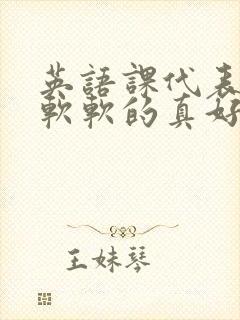 英語課代表
軟軟的真好
王妹琴